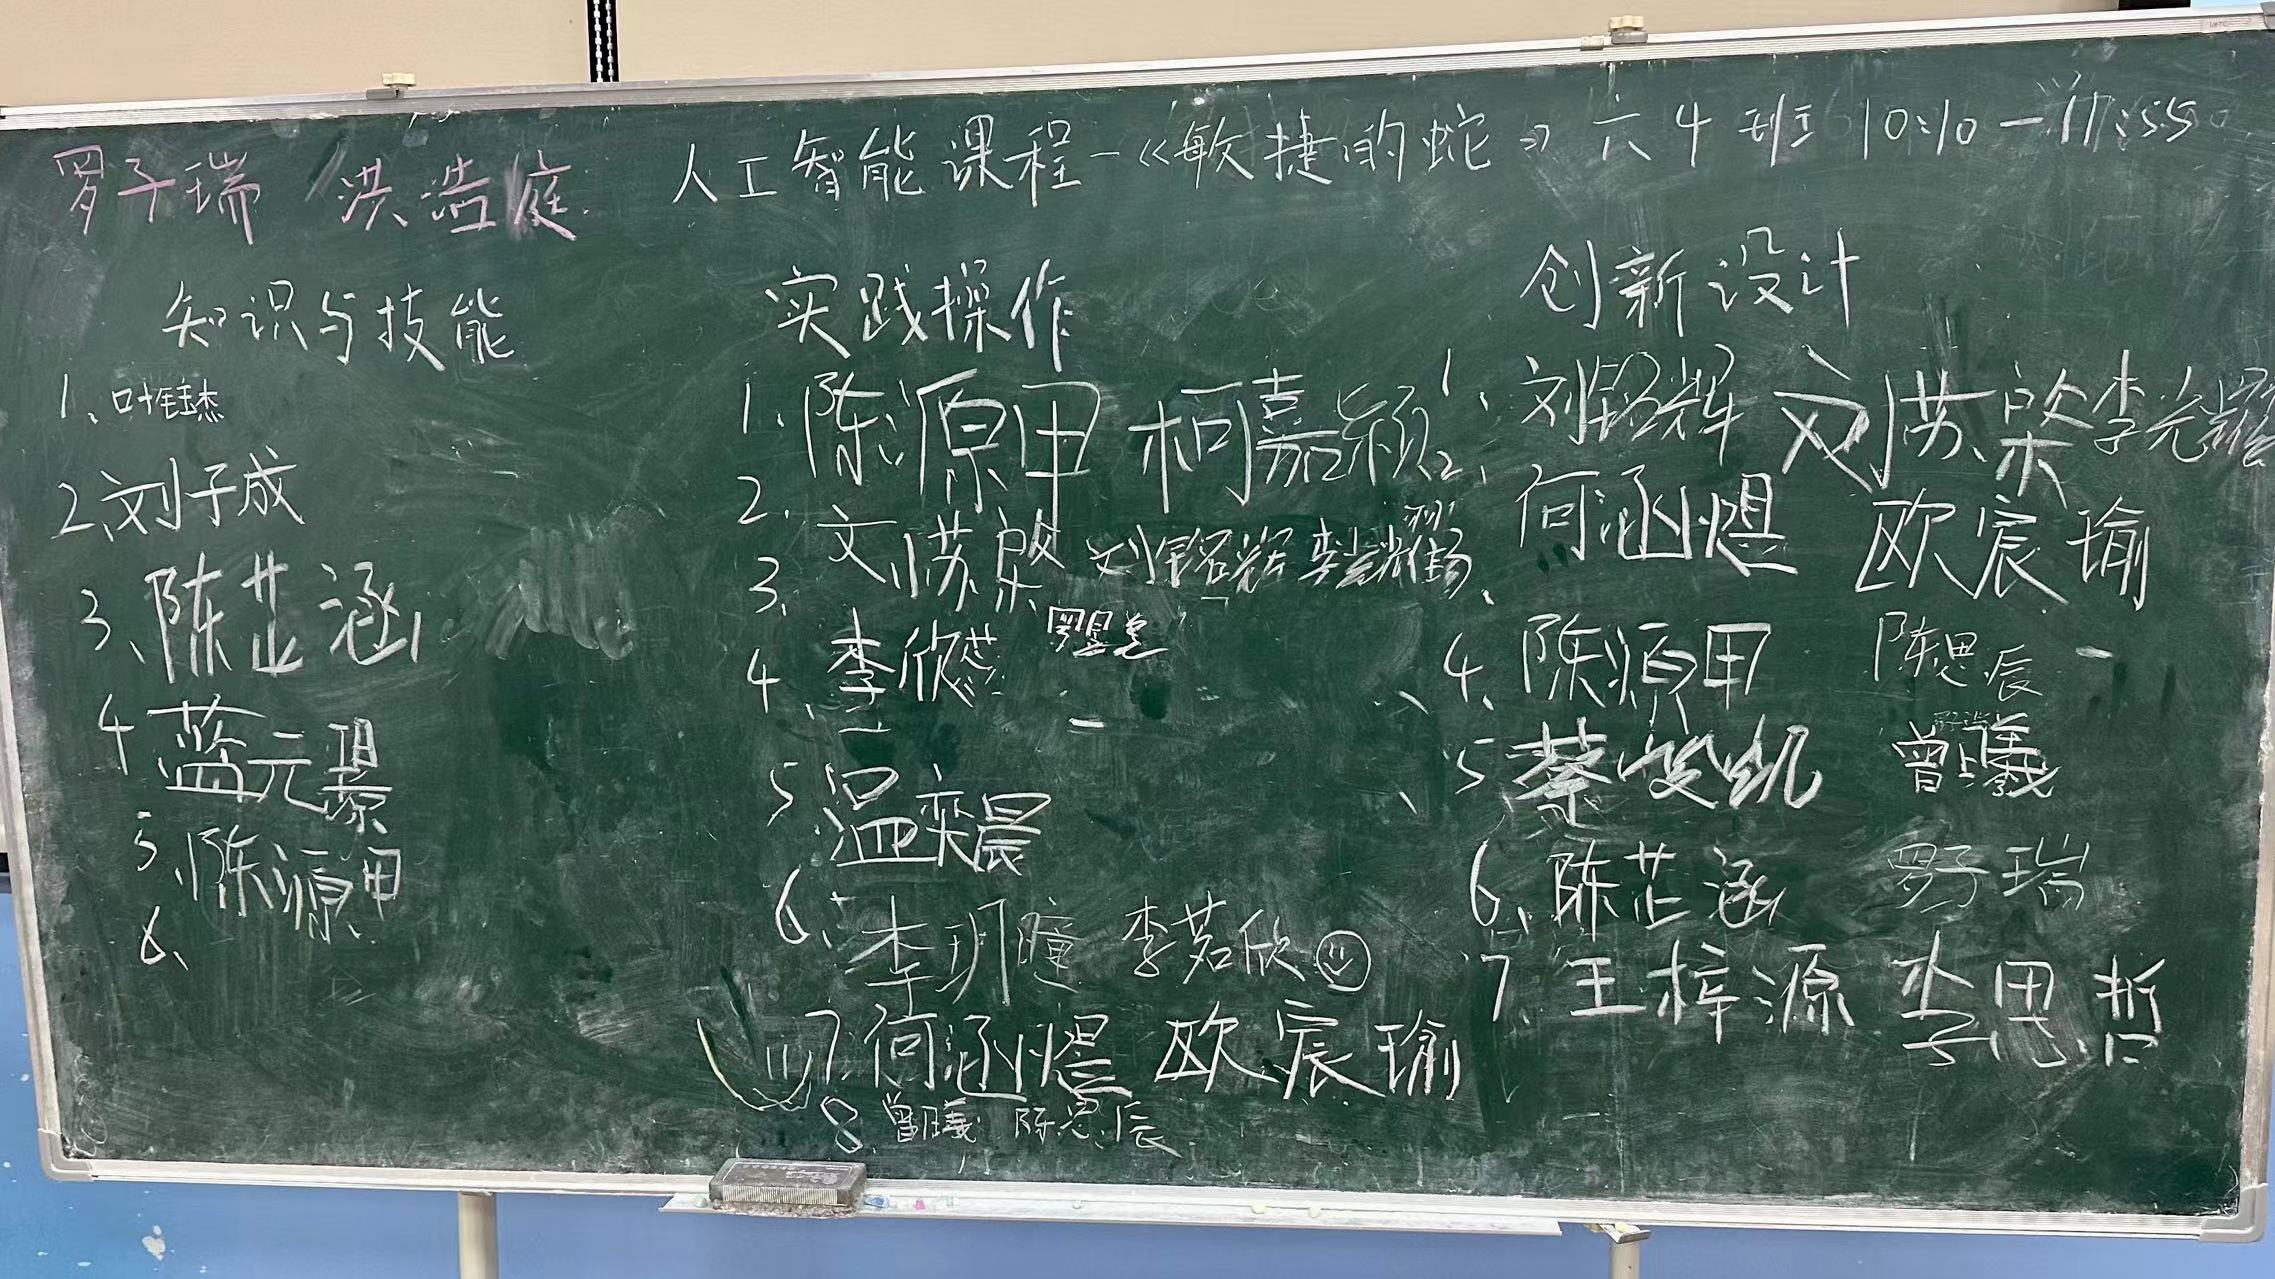 罗子瑞 洪浩庭
人工智能课程-《敏捷的蛇》 六4班 10:10-11:55
知识与技能
1、叶钰杰
2、刘子成
3、陈芷涵
4 蓝元
5、陈源甲
6、
实践操作
1. 陈源甲 柯嘉颖
2. 文慊棨 刘铭辉 李光耀
3、
4、李欣芯
5 温奕晨
6、李玥瞳 李茗欣
7 何涵焜 欧宸瑜
8 曾曦 陈思辰
创新设计
1、刘铭辉 李光耀
2、何涵焜 欧宸瑜
4、陈源甲 陈思辰
5 曾曦
6、陈芷涵 罗子瑞
7 王梓源 李思哲